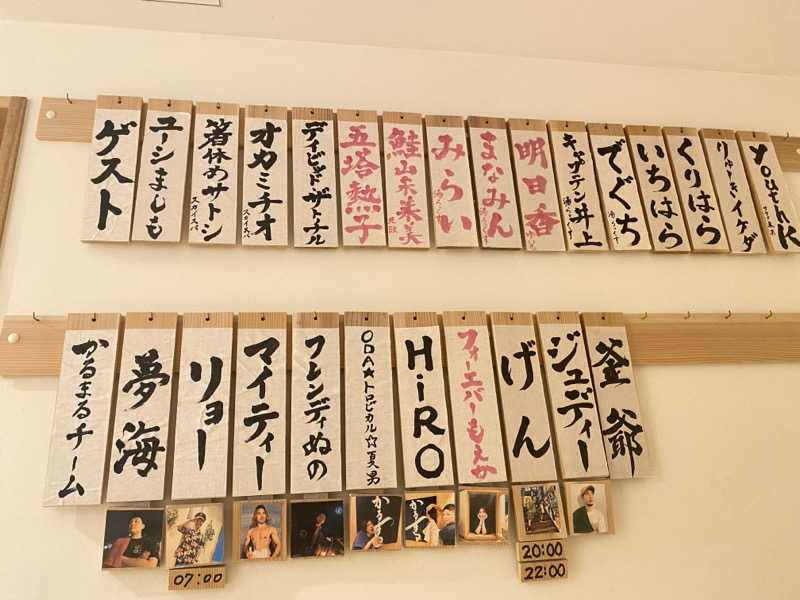 ゲスト
ユーシましも
箸休めサトシ
スカイスパ
オカミチオ
スカイスパ
デイビッドザトナル
五塔熱子
鮭山未菜美
みらい
まなみん
明日香
キャプテン井上
でぐち
いちはら
くりはら
りゅうきイケダ
YouthK
かるまるチーム
夢海
リョー
マイティー
フレンディぬの
ODA★トロピカル☆夏男
HiRO
フォーエバーもえか
げん
ジュディー
釜爺
かるまる
かるまる
07:00
20:00
22:00